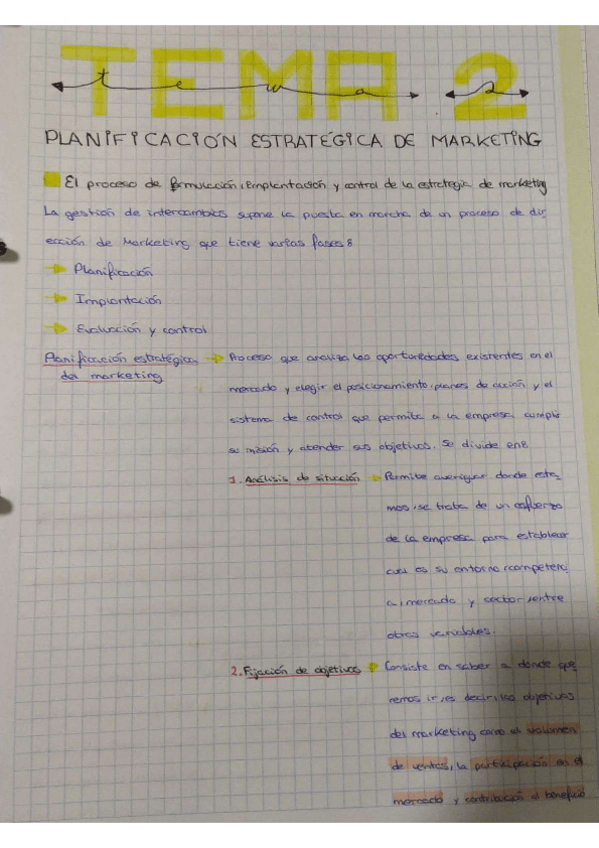 TEMA 2
tema 2
PLANIFICACIÓN ESTRATÉGICA DE MARKETING
El proceso de formulación, implantación y control de la estrategia de marketing
La gestión de intercambios supone la puesta en marcha de un proceso de dir
ección de Marketing que tiene varias fases:
Planificación
Implantación
Evaluación y control
Planificación estratégica
del marketing
Proceso que analiza las oportunidades existentes en el
mercado y elegir el posicionamiento, planes de acción y el
sistema de control que permita a la empresa cumplir
su misión y atender sus objetivos. Se divide en:
1. Análisis de situación
Permite averiguar donde esta
mos, se trata de un esfuerzo
de la empresa para establecer
cual es su entorno, competenci
a, mercado y sector, entre
otras variables.
2. Fijación de objetivos
Consiste en saber a donde que
remos ir, es decir, los objetivos
del marketing como el volumen
de ventas, la participación en el
mercado y contribución al beneficio